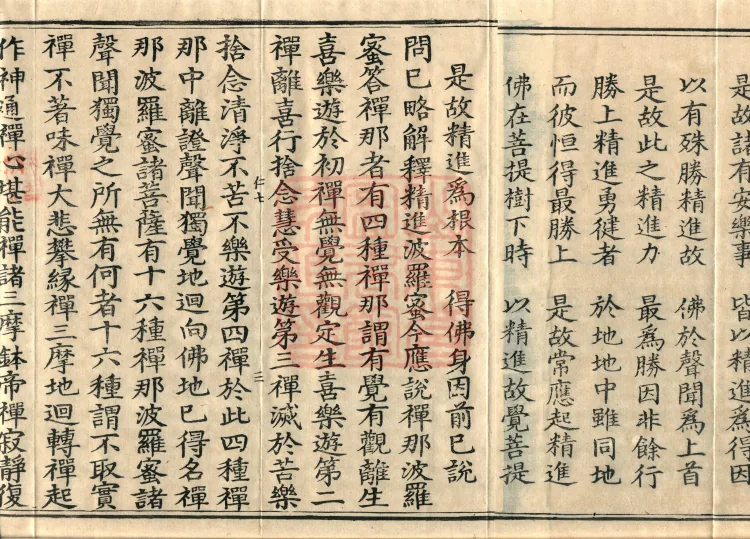 是故諸有安樂事　皆以精進爲得因
以有殊勝精進故　佛於聲聞爲上首
是故此之精進力　最爲勝因非餘行
勝上精進勇健者　於地地中雖同地
而彼恒得最勝上　是故常應起精進
佛在菩提樹下時　以精進故覺菩提
是故精進爲根本　得佛身因前已說
問已略解釋精進波羅蜜今應說禪那波羅
蜜答禪那者有四種禪那謂有覺有觀離生
喜樂遊於初禪無覺無觀定生喜樂遊第二
禪離喜行捨念慧受樂遊第三禪滅於苦樂
仁七　三
捨念清淨不苦不樂遊第四禪於此四種禪
那中離證聲聞獨覺地迴向佛地已得名禪
那波羅蜜諸菩薩有十六種禪那波羅蜜諸
聲聞獨覺之所無有何者十六種謂不取實
禪不著味禪大悲攀緣禪三摩地迴轉禪起
作神通禪心堪能禪諸三摩鉢帝禪寂靜復